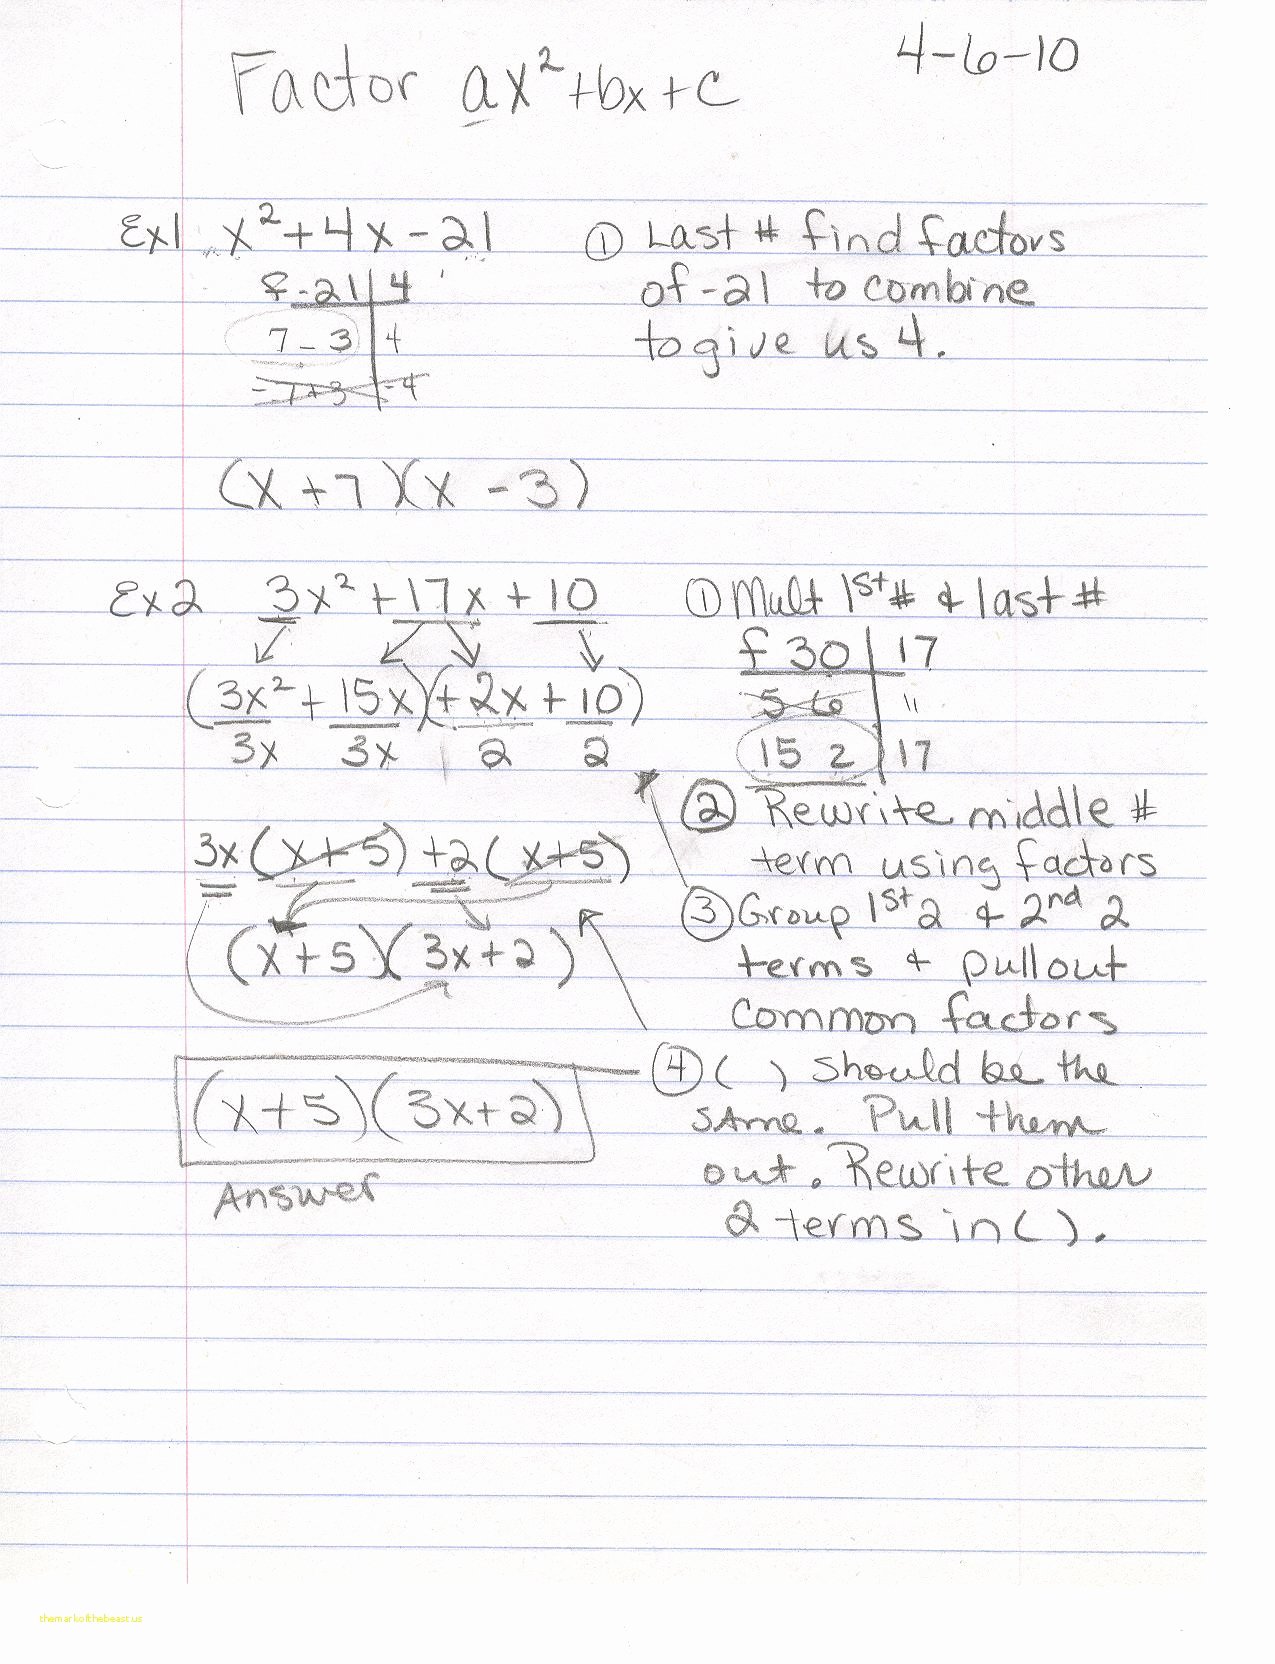 Factor ax²+bx+c
4-6-10
Ex1 x²+4x-21
f -21 | 4
7 - 3 | 4
-7+3 | -4
① Last # find factors
of -21 to combine
to give us 4.
(x+7)(x-3)
Ex2 3x²+17x+10
(3x²+15x)(+2x+10)
3x 3x 2 2
3x(x+5)+2(x+5)
(x+5)(3x+2)
(x+5)(3x+2)
Answer
① Mult 1st # & last #
f 30 | 17
5 6 | 11
15 2 | 17
② Rewrite middle #
term using factors
③ Group 1st 2 & 2nd 2
terms & pull out
common factors
④ ( ) should be the
same. Pull them
out. Rewrite other
2 terms in ( ).
themarkofthebeast.us